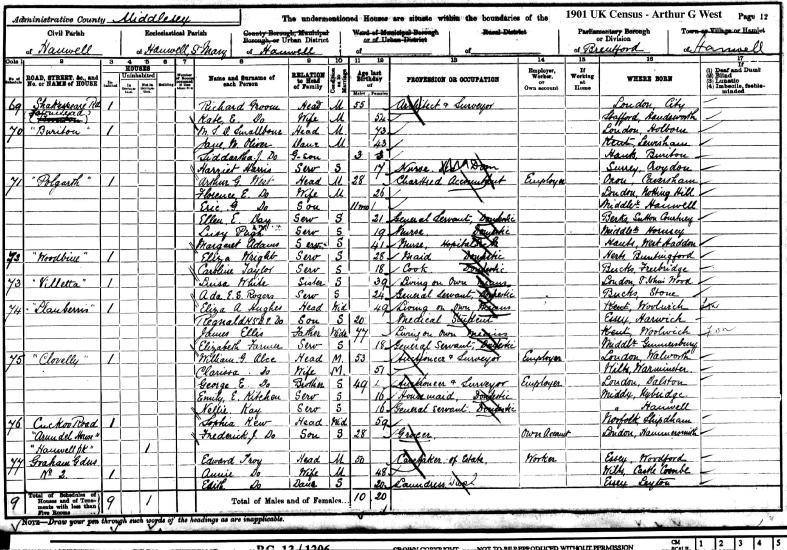 Administrative County Middlesex The undermentioned Houses are situate within the boundaries of the 1901 UK Census - Arthur G West Page 12
Civil Parish Ecclesiastical Parish County Borough, Municipal Borough, or Urban District Ward of Municipal Borough or of Urban District Rural District Parliamentary Borough or Division Town or Village or Hamlet
of Hanwell of Hanwell St Mary of Hanwell of Brentford of Hanwell
Cols 1 2 3 4 5 6 7 8 9 10 11 12 13 14 15 16 17
ROAD, STREET, &c., and No. or NAME of HOUSE HOUSES Uninhabited Name and Surname of each Person RELATION to Head of Family Condition as to Marriage Age last Birthday of PROFESSION OR OCCUPATION Employer, Worker, or Own account If Working at Home WHERE BORN If (1) Deaf and Dumb (2) Blind (3) Lunatic (4) Imbecile, feeble-minded
Males Females
69 Shakespeare Rd 1 Richard Head M 55 Architect & Surveyor London, City
Kate E. Do Wife M 52 Stafford, Handsworth
70 "Buriton" 1 Smallbone Head M 73 London, Holborn
Jane W. Oliver M 43 Kent, Lewisham
Do G-son 3 Hants, Buriton
Harriet Harris Serv S 17 Nurse Surrey, Croydon
71 "Polgarth" 1 Arthur G. West Head M 28 Chartered Accountant Employer Oxon, Caversham
Florence E. Do Wife M 26 London, Notting Hill
Eric G. Do Son 11 mo Middlx Hanwell
Ellen E. Day Serv S 21 General Servant, Domestic Berks, Sutton Courtney
Lucy Serv S 19 Nurse Domestic Middlx Hornsey
Margaret Adams Serv S 41 Nurse, Hospital Hants, West Haddon
72 "Woodbine" 1 Eliza Wright Serv S 28 Maid Domestic Herts Buntingford
Caroline Taylor Serv S 18 Cook Domestic Bucks
73 "Villetta" 1 Luisa White Sister S 39 Living on Own Means London, St Johns Wood
Ada E. E. Rogers Serv S 24 General Servant, Domestic Bucks, Stone
74 1 Eliza A. Hughes Head Wid 49 Living on Own Means Kent, Woolwich
Reginald Do Son S 20 Medical Student Essex, Harwich
James Ellis Father Wid 77 Living on Own Means Kent, Woolwich
Elizabeth Farmer Serv S 18 General Servant, Domestic Middlx Gunnersbury
75 "Clovelly" 1 William G. Head M. 53 Auctioneer & Surveyor Employer London, Walworth
Clarissa Do Wife M. 51 Wilts, Warminster
George E. Do Brother S 49 Auctioneer & Surveyor Employer London, Dalston
Emily E. Kitchen Serv S 16 Housemaid, Domestic Middx,
Nellie Kay Serv S 16 General Servant, Domestic " Hanwell
76 Cuckoo Road 1 Sophia Kew Head Wid 59 Norfolk, Shipdham
"Arundel House" Frederick J. Do Son S 28 Grocer Own Account London, Hammersmith
1
77 Graham Gdns 1 Edward Troy Head M 50 Caretaker of Estate Worker Essex, Woodford
No 2. Annie Do Wife M 48 Wilts, Castle Coombe
Edith Do Daur S 20 Laundress Essex Leyton
9 Total of Schedules of Houses and of Tenements with less than Five Rooms 9 1 Total of Males and of Females... 10 20
NOTE—Draw your pen through such words of the headings as are inapplicable.
RG 13/1206 CROWN COPYRIGHT NOT TO BE REPRODUCED WITHOUT PERMISSION CM SCALE 1 2 3 4 5